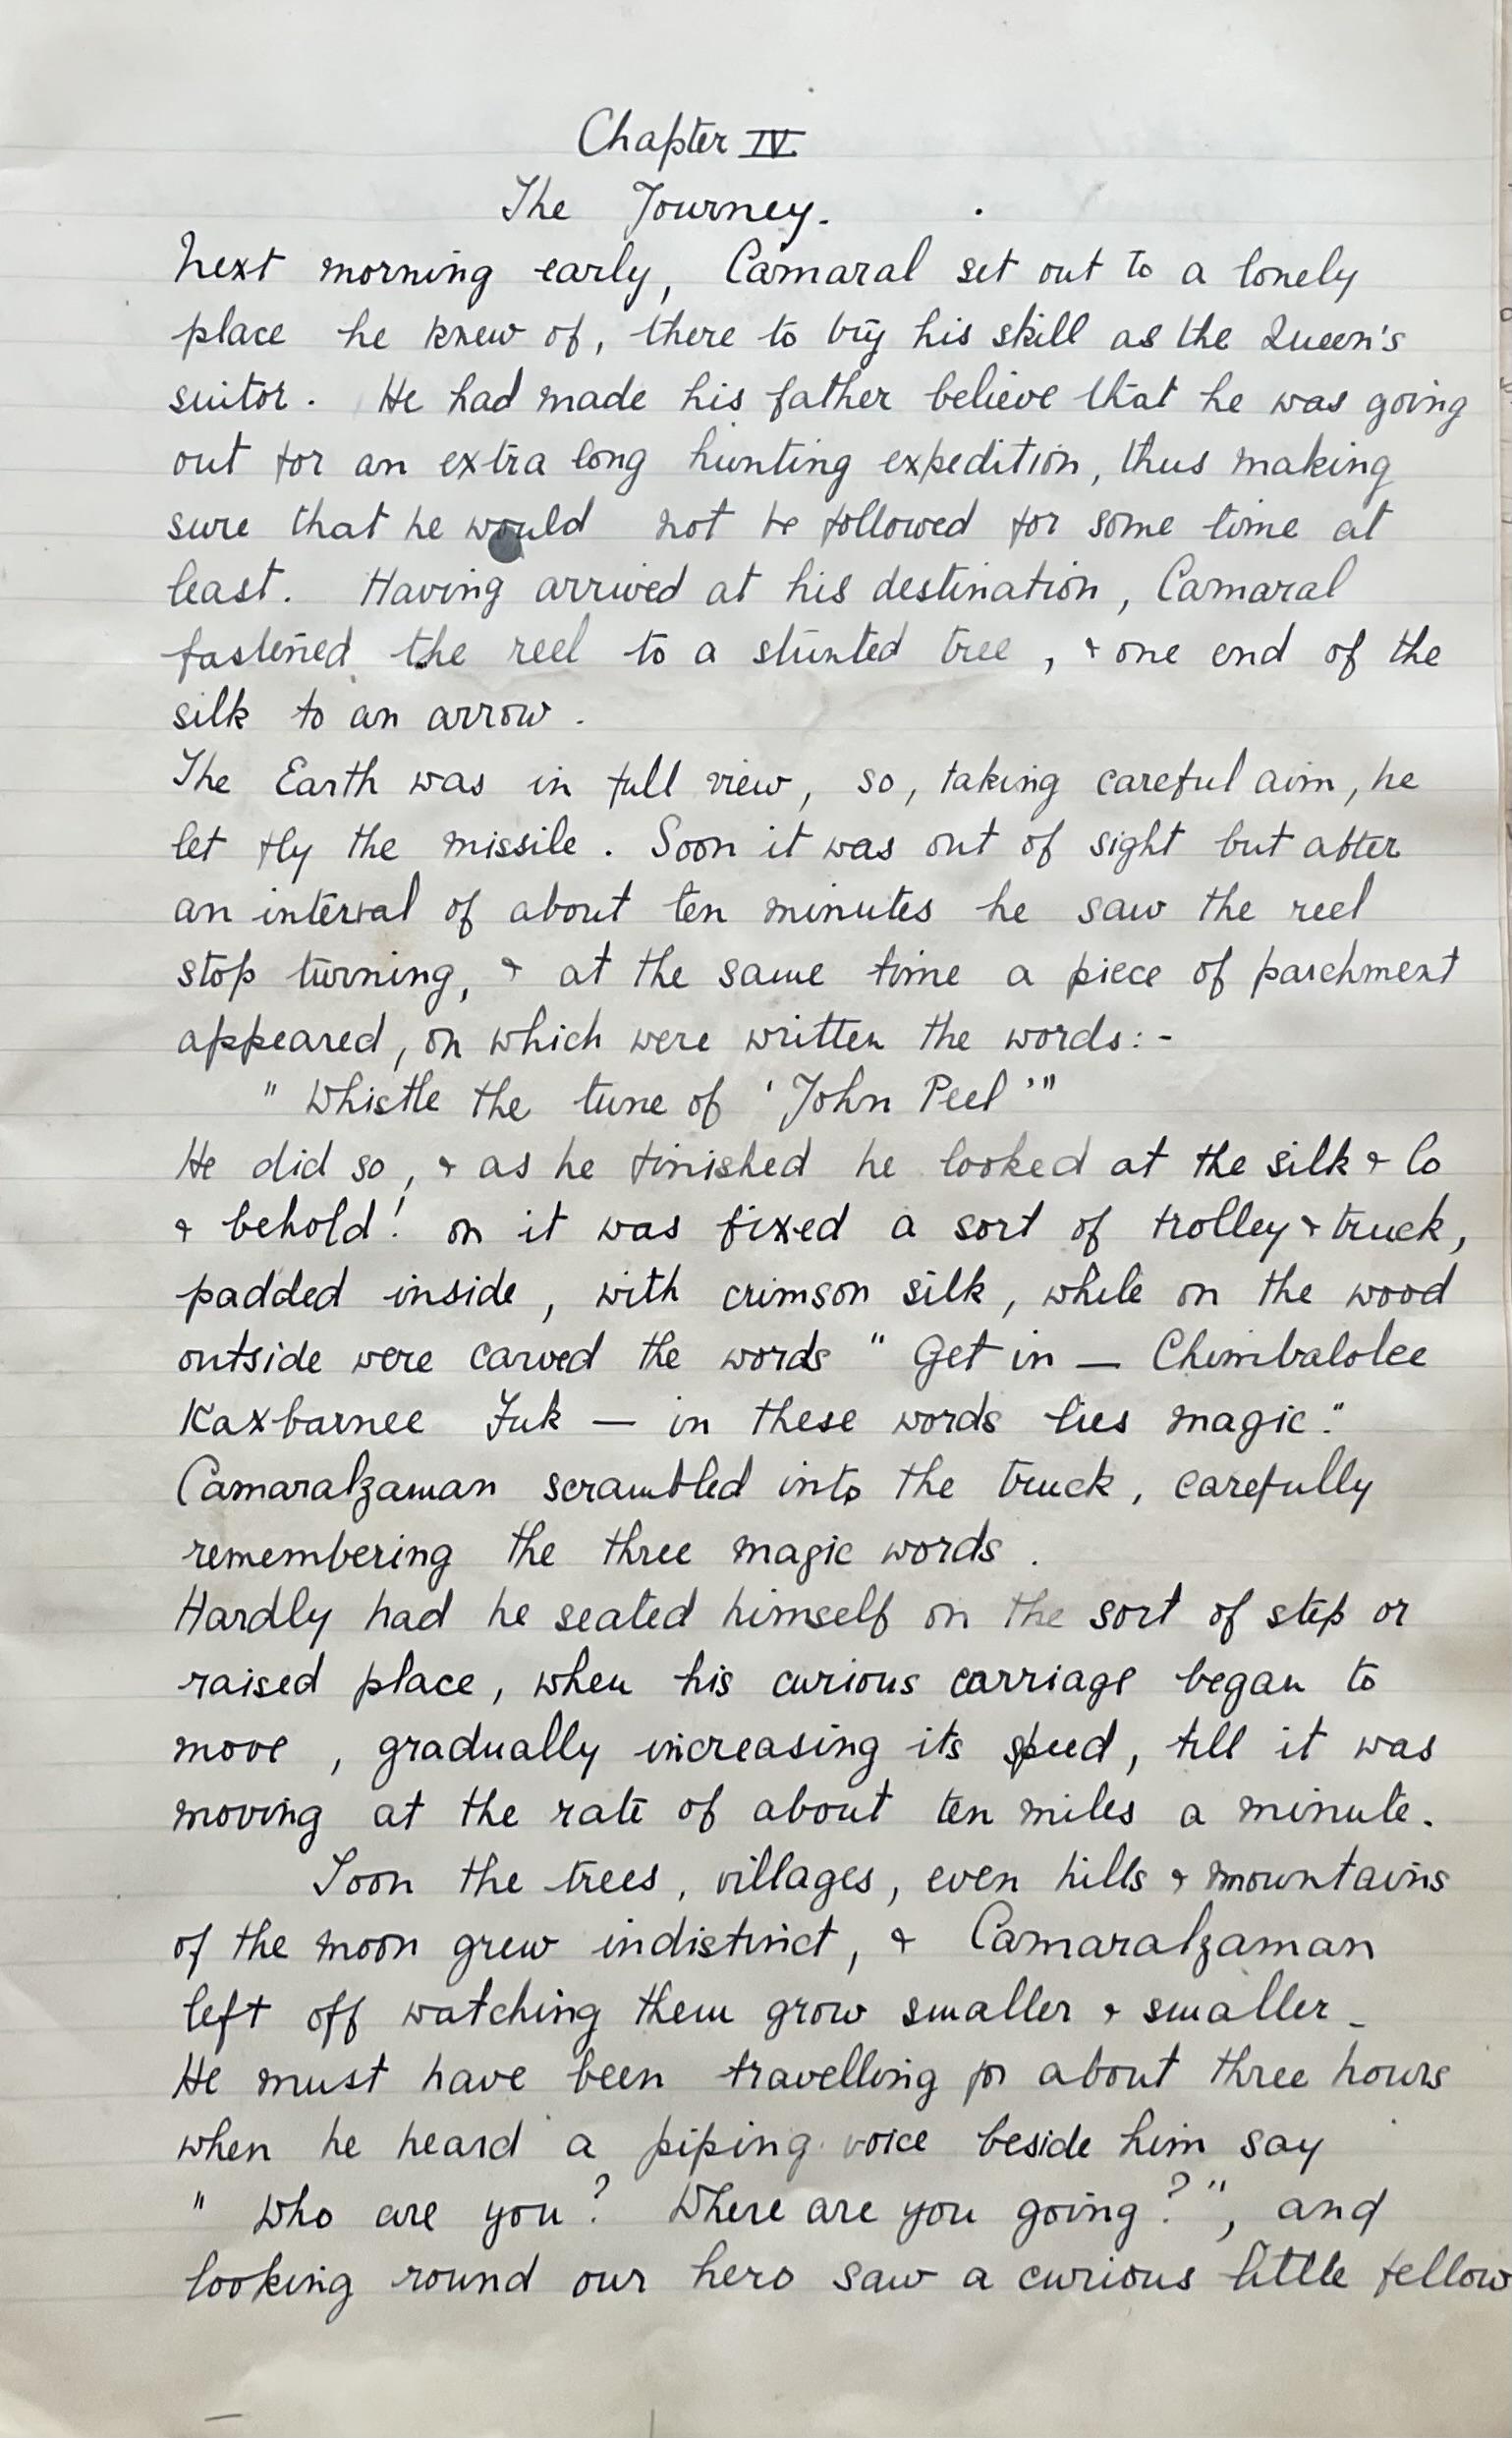 Chapter IV.
The Journey.
Next morning early, Camaral set out to a lonely
place he knew of, there to try his skill as the Queen's
suitor. He had made his father believe that he was going
out for an extra long hunting expedition, thus making
sure that he would not be followed for some time at
least. Having arrived at his destination, Camaral
fastened the reel to a stunted tree, & one end of the
silk to an arrow.
The Earth was in full view, so, taking careful aim, he
let fly the missile. Soon it was out of sight but after
an interval of about ten minutes he saw the reel
stop turning, & at the same time a piece of parchment
appeared, on which were written the words:-
"Whistle the tune of 'John Peel'"
He did so, & as he finished he looked at the silk & lo
& behold! on it was fixed a sort of trolley & truck,
padded inside, with crimson silk, while on the wood
outside were carved the words "Get in — Chimbalolee
Kaxbarnee Juk — in these words lies magic."
Camaralzaman scrambled into the truck, carefully
remembering the three magic words.
Hardly had he seated himself on the sort of step or
raised place, when his curious carriage began to
move, gradually increasing its speed, till it was
moving at the rate of about ten miles a minute.
Soon the trees, villages, even hills & mountains
of the moon grew indistinct, & Camaralzaman
left off watching them grow smaller & smaller.
He must have been travelling for about three hours
when he heard a piping voice beside him say
"Who are you? Where are you going?", and
looking round our hero saw a curious little fellow